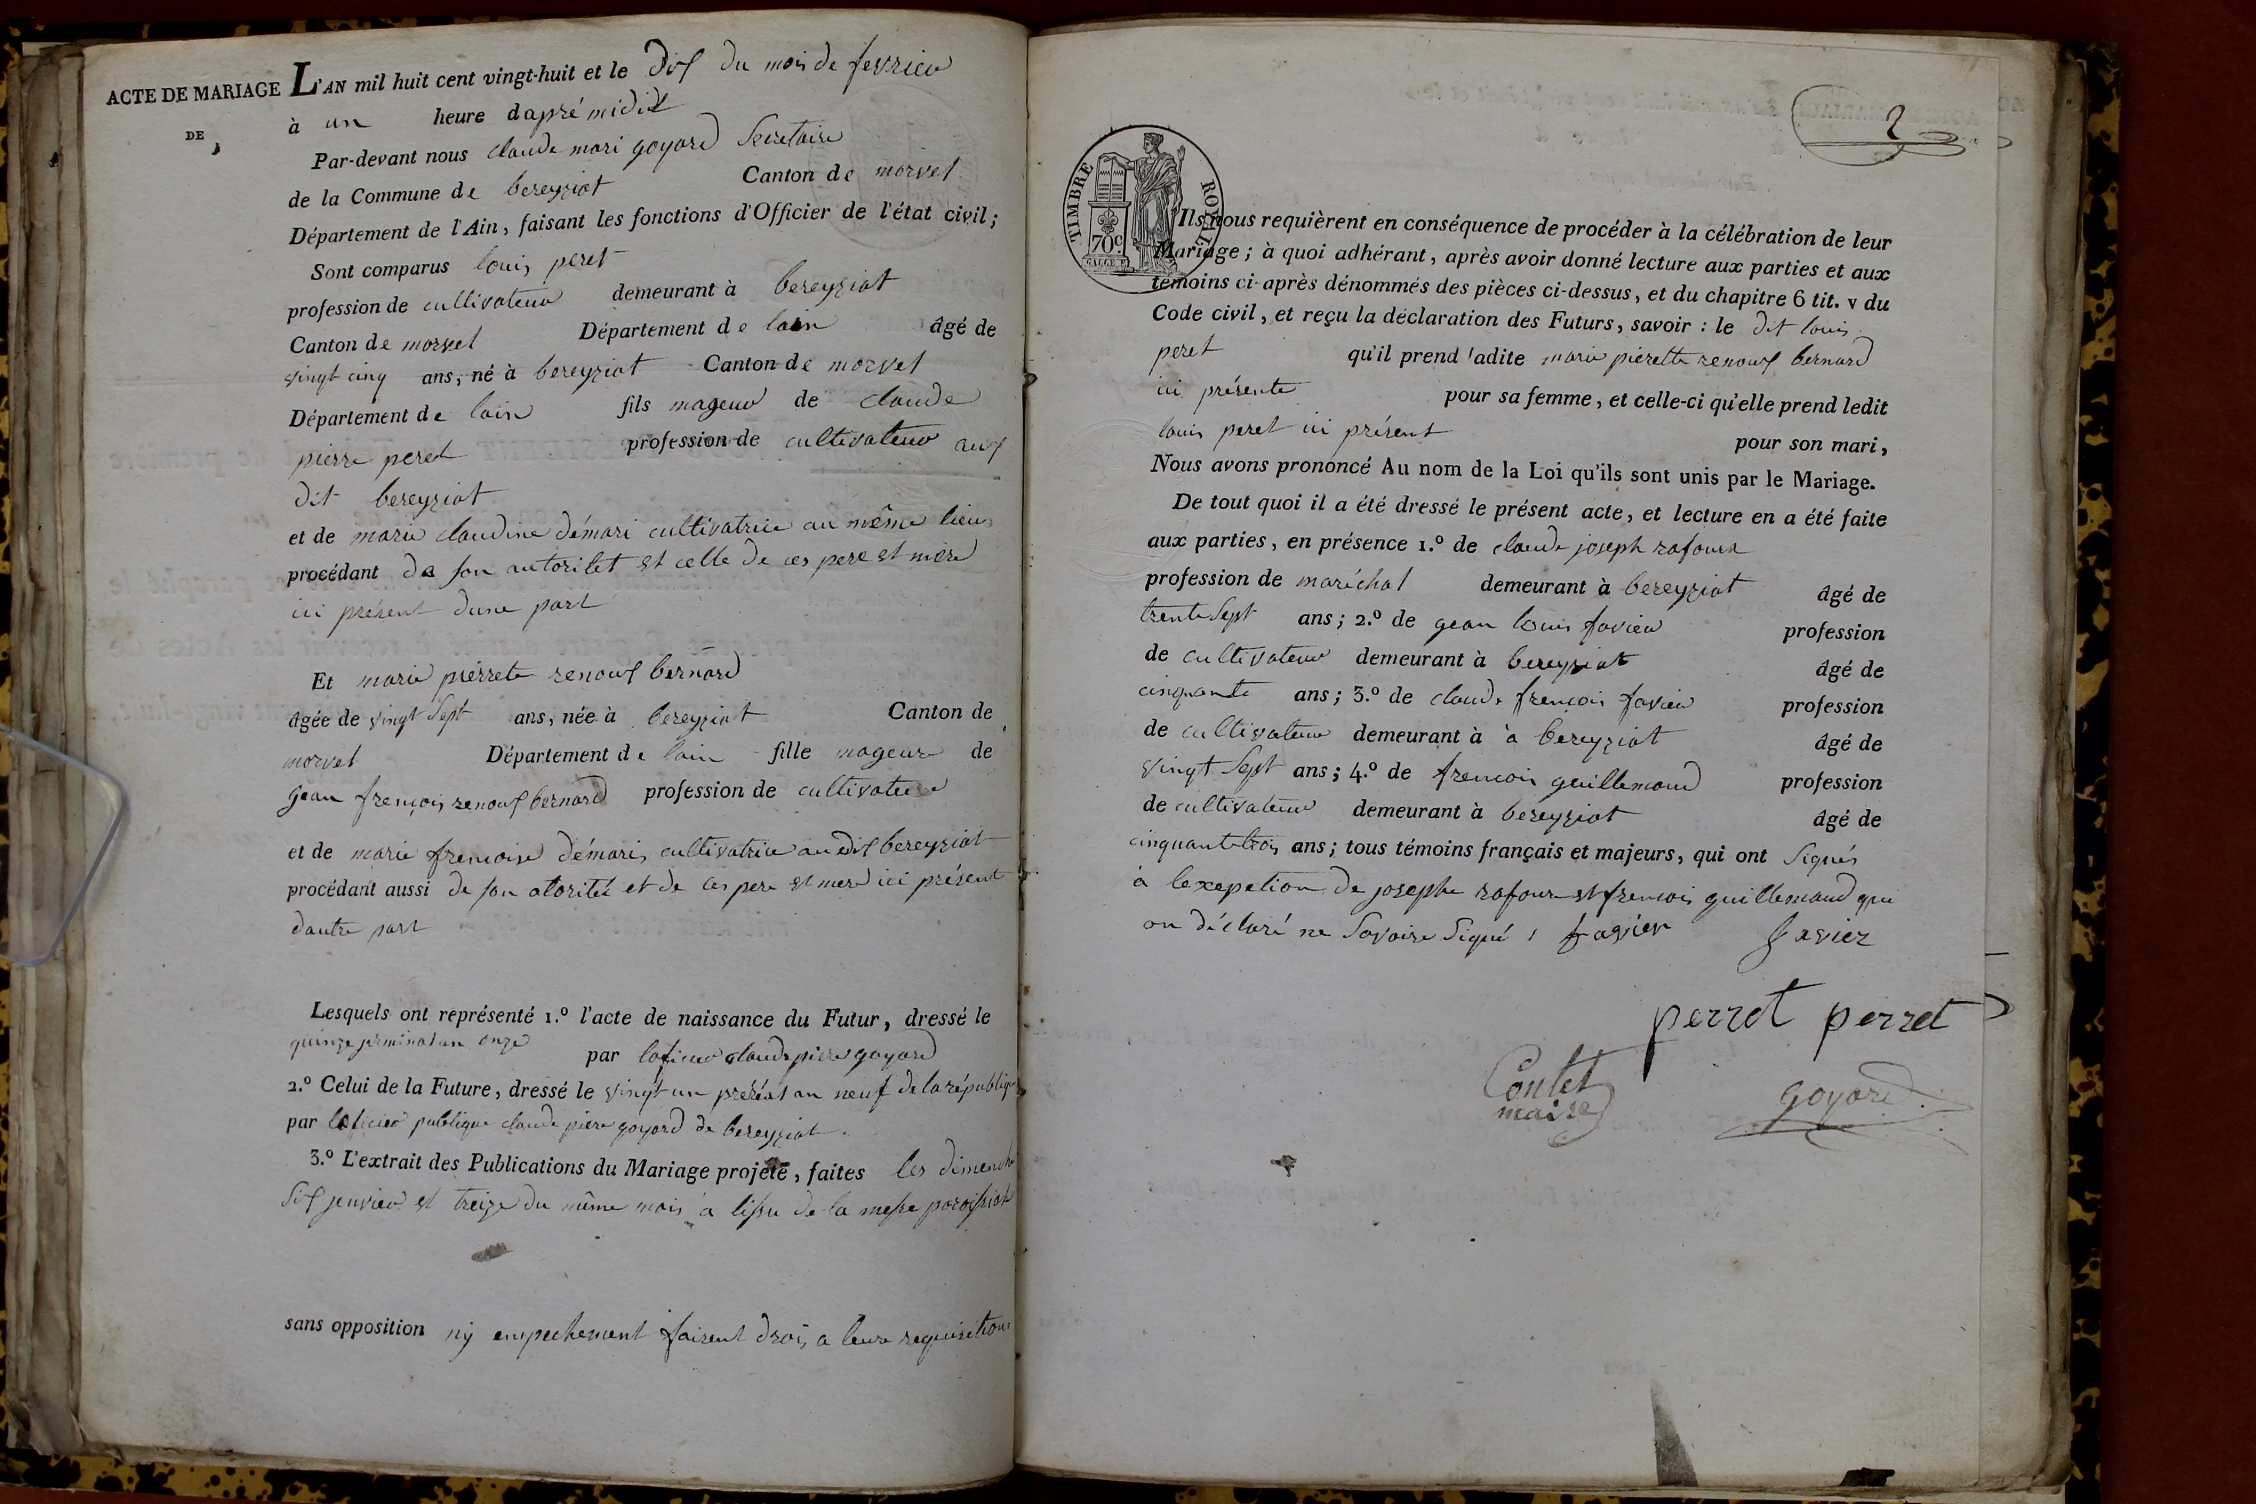 ACTE DE MARIAGE
DE
L'AN mil huit cent vingt-huit et le dix du mois de fevrier
à un heure dapré midit
Par-devant nous claude mari goyard Secretaire
de la Commune de bereyziat Canton de morvel
Département de l'Ain, faisant les fonctions d'Officier de l'état civil;
Sont comparus louis peret
profession de cultivateur demeurant à bereyziat
Canton de morvel Département de lain âgé de
vingt cinq ans, né à bereyziat Canton de morvel
Département de lain fils mageur de claude
pierre peret profession de cultivateur aux
dit bereyziat
et de marie claudine démari cultivatrice au même lieu
procédant de son autoritet et celle de ces pere et mere
ici présent dune part
Et marie piérrete renoux bernard
âgée de vingt Sept ans, née à bereyziat Canton de
morvel Département de lain fille mageure de
gean françois renoux bernard profession de cultivateur
et de marie francoise démari cultivatrice audit bereyziat
procédant aussi de son atorité et de ces pere et mere ici présent
dautre part
Lesquels ont représenté 1.º l'acte de naissance du Futur, dressé le
quinze jerminal an onze par loficier claude piere goyard
2.º Celui de la Future, dressé le vingt un preréal an neuf de la républiq
par loficier publique claude piere goyard de bereyziat.
3.º L'extrait des Publications du Mariage projeté, faites les dimenche
Six janvier et treize du même mois a lissu de la messe paroissial
sans opposition ny empechement fairent drois a leur requisition
2
TIMBRE ROYAL
70c
Ils nous requièrent en conséquence de procéder à la célébration de leur
Mariage; à quoi adhérant, après avoir donné lecture aux parties et aux
témoins ci-après dénommés des pièces ci-dessus, et du chapitre 6 tit. v du
Code civil, et reçu la déclaration des Futurs, savoir : le dit louis
peret qu'il prend ladite marie piérette renoux bernard
ici présente pour sa femme, et celle-ci qu'elle prend ledit
louis peret ici présent pour son mari,
Nous avons prononcé Au nom de la Loi qu'ils sont unis par le Mariage.
De tout quoi il a été dressé le présent acte, et lecture en a été faite
aux parties, en présence 1.º de claude joseph rafour
profession de maréchal demeurant à bereyziat âgé de
trente Sept ans; 2.º de gean louis favier profession
de cultivateur demeurant à bereyziat âgé de
cinquante ans; 3.º de claude francois favier profession
de cultivateur demeurant à a bereyziat âgé de
vingt Sept ans; 4.º de francois guillemaud profession
de cultivateur demeurant à bereyziat âgé de
cinquantetrois ans; tous témoins français et majeurs, qui ont Signés
a lexepetion de josephe rafour et francois guillemaud qui
on déclaré ne Savoire Signé, favier favier
perret perret
Contet
maire
goyard